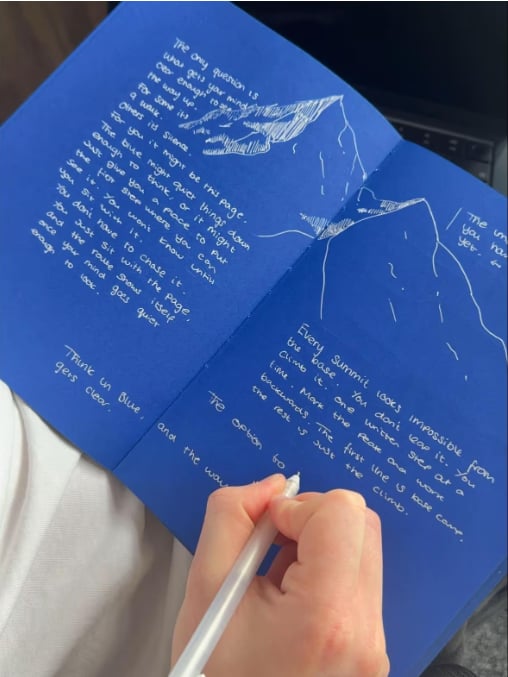 The only question is
what gets your mind
clear enough to see
the way up.
For some it
a walk.
Others it silence
For you it might be this page.
The blue might quiet things down
enough to think, or it might
just give you a place to put
the first step where you can
see it. You won't know until
you sit with it.
You don't have to chase it.
You just sit with the page,
and the route shows itself
once your mind goes quiet
to look.
Think in Blue.
gets clear.
The
you
yet.
Every summit looks impossible from
the base. You don't leap it. You
climb it. One written step at a
line. Mark the peak and work
backwards. The first line is base camp,
the rest is just the climb.
The option to
and the way